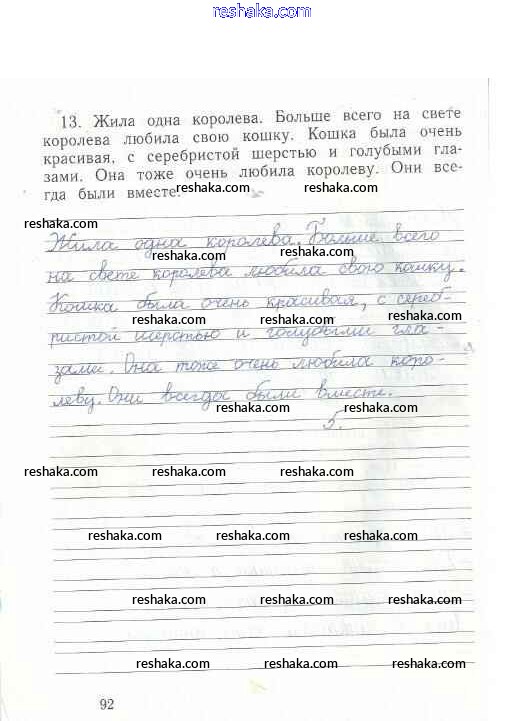 reshaka.com
13. Жила одна королева. Больше всего на свете
королева любила свою кошку. Кошка была очень
красивая, с серебристой шерстью и голубыми гла-
зами. Она тоже очень любила королеву. Они все-
гда были вместе.
reshaka.com reshaka.com
reshaka.com
Жила одна королева. Больше всего
reshaka.com reshaka.com
на свете королева любила свою кошку.
Кошка была очень красивая, с сереб-
reshaka.com reshaka.com reshaka.com
ристой шерстью и голубыми гла-
зами. Она тоже очень любила коро-
reshaka.com reshaka.com
леву. Они всегда были вместе.
reshaka.com reshaka.com
5.
reshaka.com reshaka.com reshaka.com
reshaka.com reshaka.com reshaka.com
reshaka.com reshaka.com reshaka.com
reshaka.com reshaka.com reshaka.com
92